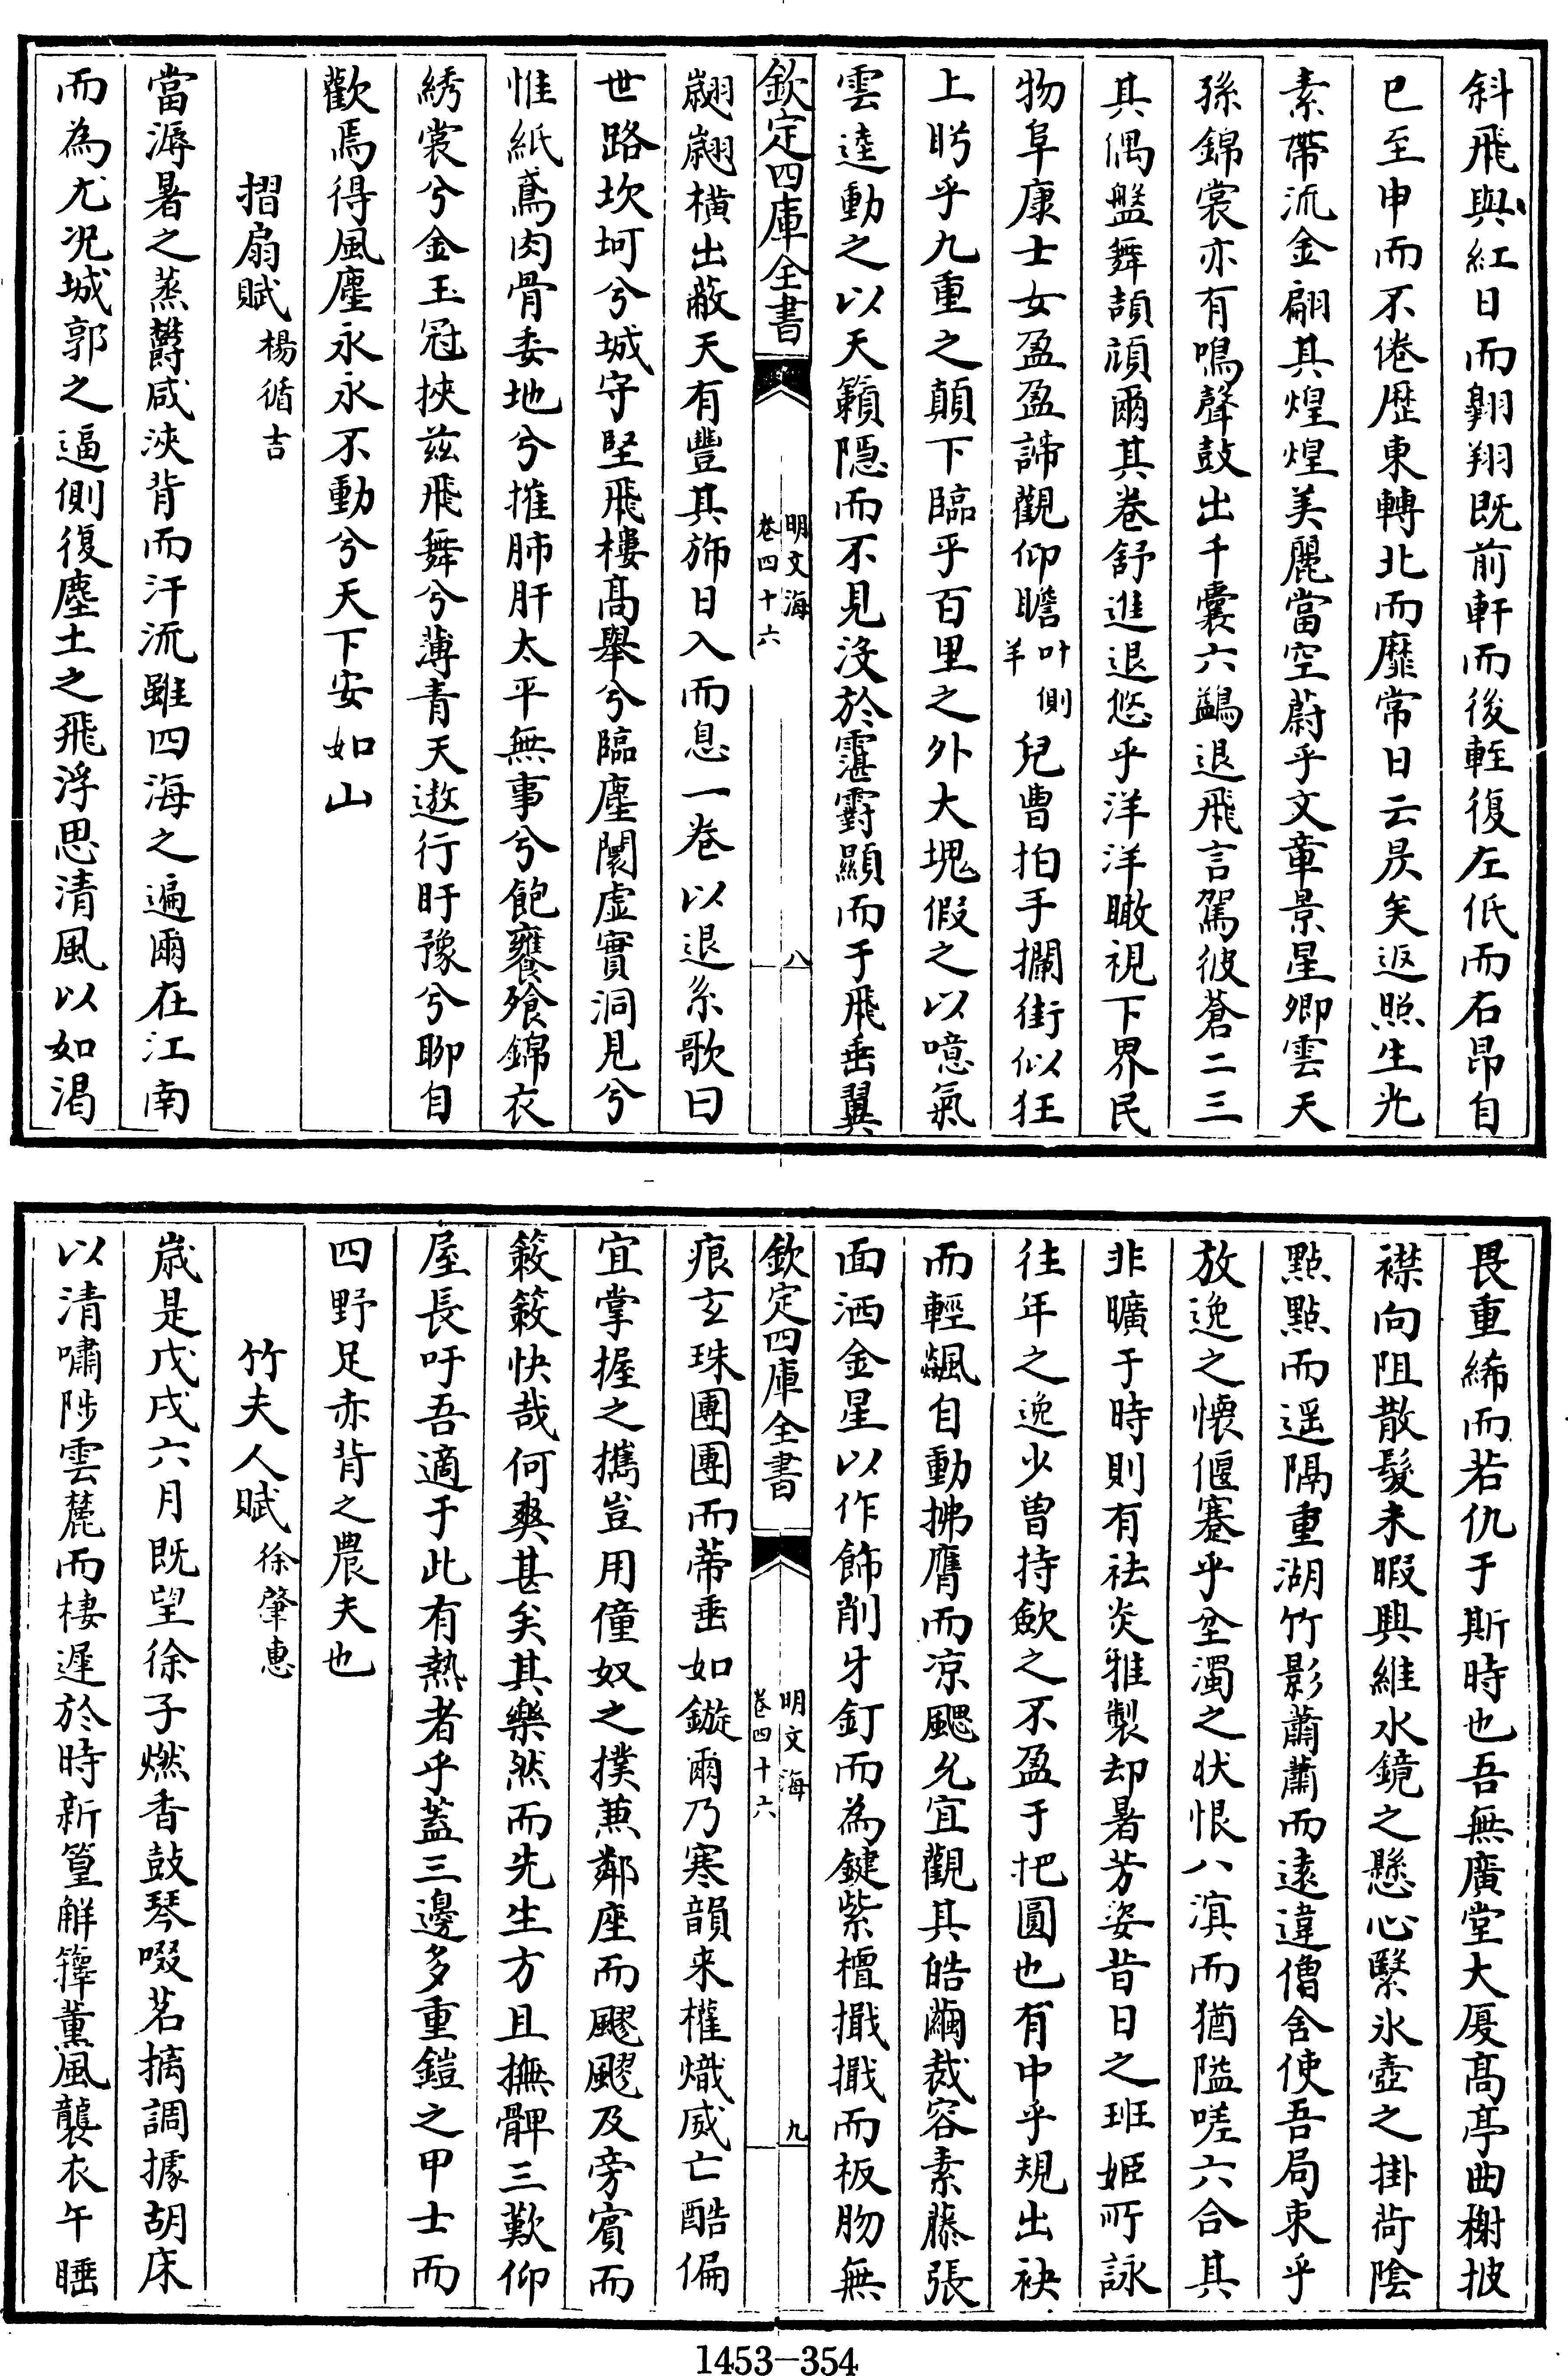 斜飛與紅日而翺翔既前軒而後輊復左低而右昂自
巳至申而不倦歴東轉北而靡常日云昃矣返照生光
素帶流金翩其煌煌美麗當空蔚乎文章景星卿雲天
孫錦裳亦有鳴聲鼓出千囊六鷁退飛言駕彼蒼二三
其偶盤舞頡頏爾其卷舒進退悠乎洋洋瞰視下界民
物阜康士女盈盈諦觀仰瞻叶側羊兒曹拍手攔街似狂
上盻乎九重之顛下臨乎百里之外大塊假之以噫氣
雲逵動之以天籟隠而不見没於霮䨴顯而于飛垂翼
欽定四庫全書 明文海 卷四十六 八
翽翽横出蔽天有豐其斾日入而息一卷以退糸歌曰
世路坎坷兮城守堅飛樓髙舉兮臨塵闤虚實洞見兮
惟紙鳶肉骨委地兮摧肺肝太平無事兮飽饔飱錦衣
綉裳兮金玉冠挾兹飛舞兮薄青天遨行盱豫兮聊自
歡焉得風塵永永不動兮天下安如山
摺扇賦 楊循吉
當溽暑之蒸欝咸浹背而汗流雖四海之遍爾在江南
而為尤况城郭之逼側復塵土之飛浮思清風以如渇
畏重絺而若仇于斯時也吾無廣堂大厦髙亭曲榭披
襟向阻散髮未暇興維水鏡之懸心緊氷壺之掛荷陰
點點而遥隔重湖竹影蕭蕭而逺違僧舍使吾局束乎
放逸之懐偃蹇乎坌濁之状恨八溟而猶隘嗟六合其
非曠于時則有祛炎雅製却暑芳姿昔日之班姬所詠
往年之逸少曽持歛之不盈于把圓也有中乎規出袂
而輕飈自動拂膺而凉颸允宜觀其皓繭裁容素藤張
面洒金星以作飾削牙釘而為鍵紫檀擑擑而板肕無
欽定四庫全書 明文海 卷四十六 九
痕玄珠團團而蒂垂如鏇爾乃寒韻来權熾威亡酷偏
宜掌握之携豈用僮奴之撲兼鄰座而飂飂及旁賓而
簌簌快哉何爽甚矣其樂然而先生方且撫髀三歎仰
屋長吁吾適于此有熱者乎蓋三邊多重鎧之甲士而
四野足赤背之農夫也
竹夫人賦 徐肇惠
嵗是戊戌六月既望徐子燃香鼓琴啜茗摘調據胡床
以清嘯陟雲麓而棲遲於時新篁解籜薰風襲衣午睡
1453-354